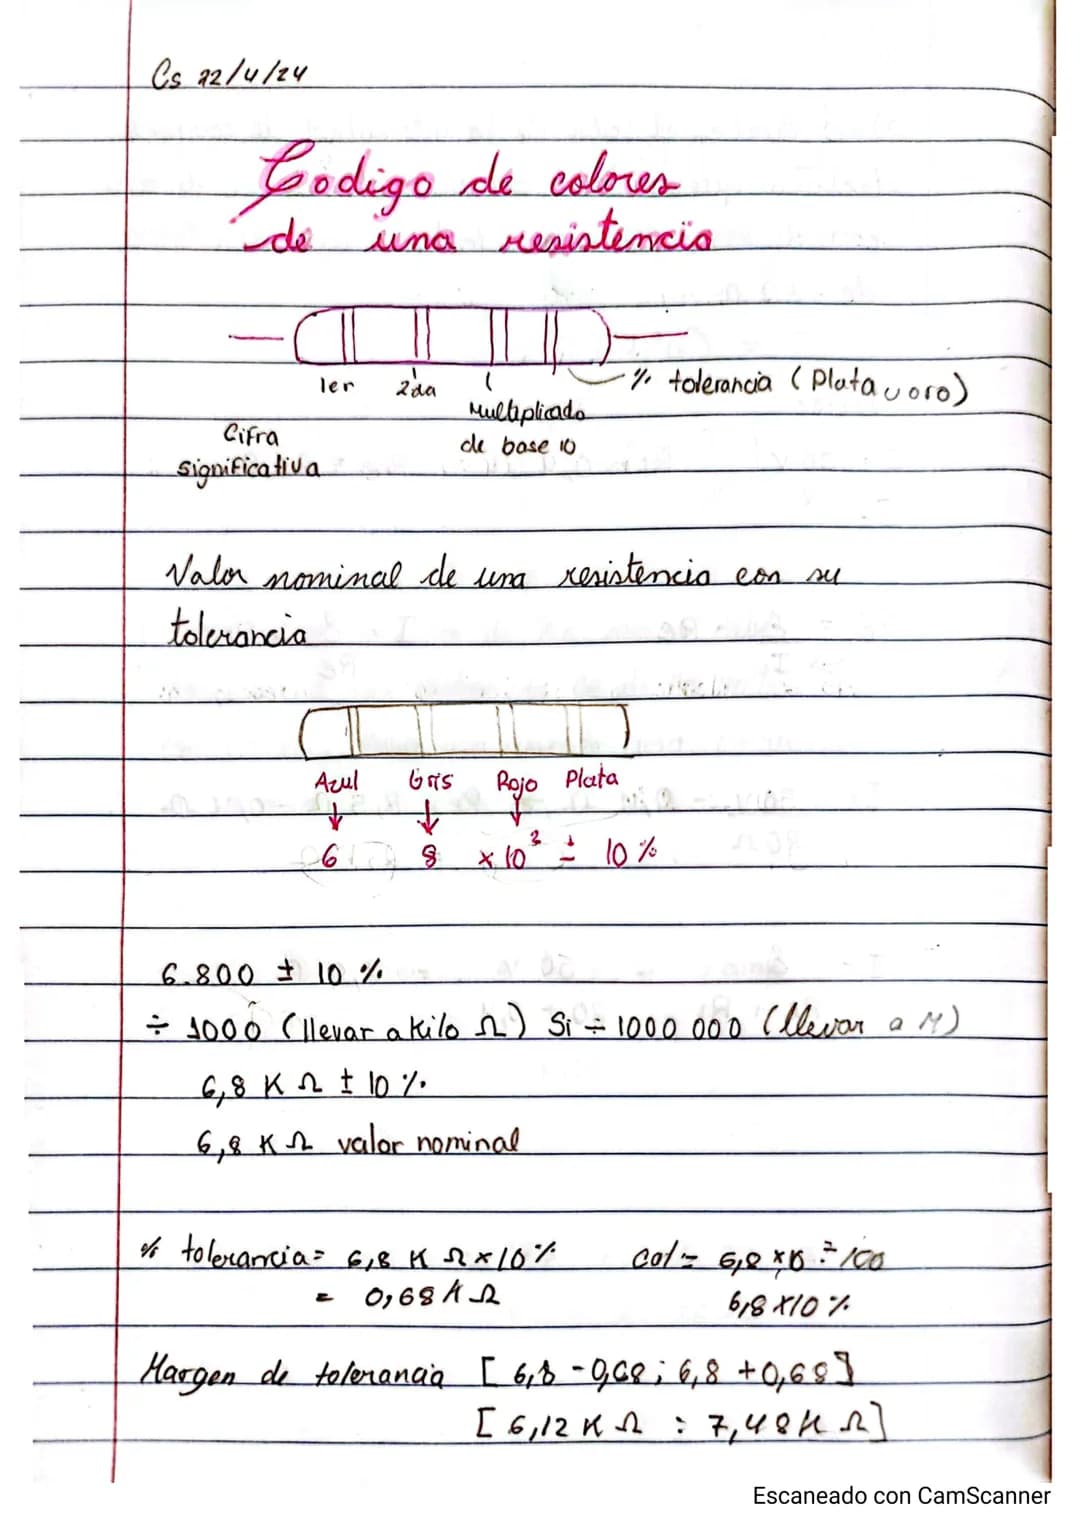 Cs 22/4/24
Codigo de colores
de una resistencia
1er 2da % tolerancia (Plata u oro)
Multiplicado
de base 10
Cifra
significativa
Valor nominal de una resistencia con su
tolerancia
Azul Gris Rojo Plata
6 8 x 10² ± 10 %
6.800 ± 10 %
÷ 1000 (llevar a kilo Ω) Si ÷ 1000 000 (llevar a M)
6,8 K Ω ± 10 %
6,8 K Ω valor nominal
% tolerancia = 6,8 K Ω x 10 % Cal = 6,8 x 10 ÷ 100
= 0,68 K Ω 6,8 x 10 %
Margen de tolerancia [ 6,8 - 0,68 ; 6,8 + 0,68 ]
[ 6,12 K Ω : 7,48 K Ω ]
Escaneado con CamScanner